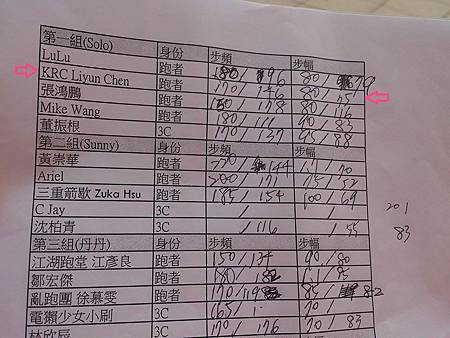 第一組(Solo) 身份 步頻 步幅
LuLu 跑者 180/196 80/79
KRC Liyun Chen 跑者 170/146 80/75
張鴻鵬 跑者 150/178 80/116
Mike Wang 跑者 180/111 90/83
董振根 3C 170/137 95/88
第二組(Sunny) 身份 步頻 步幅
黃崇華 跑者 /144 /70
Ariel 跑者 200/171 75/52
三重箭歇 Zuka Hsu 跑者 185/154 100/69
C Jay 3C / / 201
沈柏青 3C /116 /55 83
第三組(丹丹) 身份 步頻 步幅
江湖跑堂 江彥良 跑者 150/134 90/80
鄒宏傑 跑者 /85
亂跑團 徐慕雯 跑者 170/198 85/82
電獺少女小刷 3C 165/ 70/
林欣辰 3C 170/176 70/83